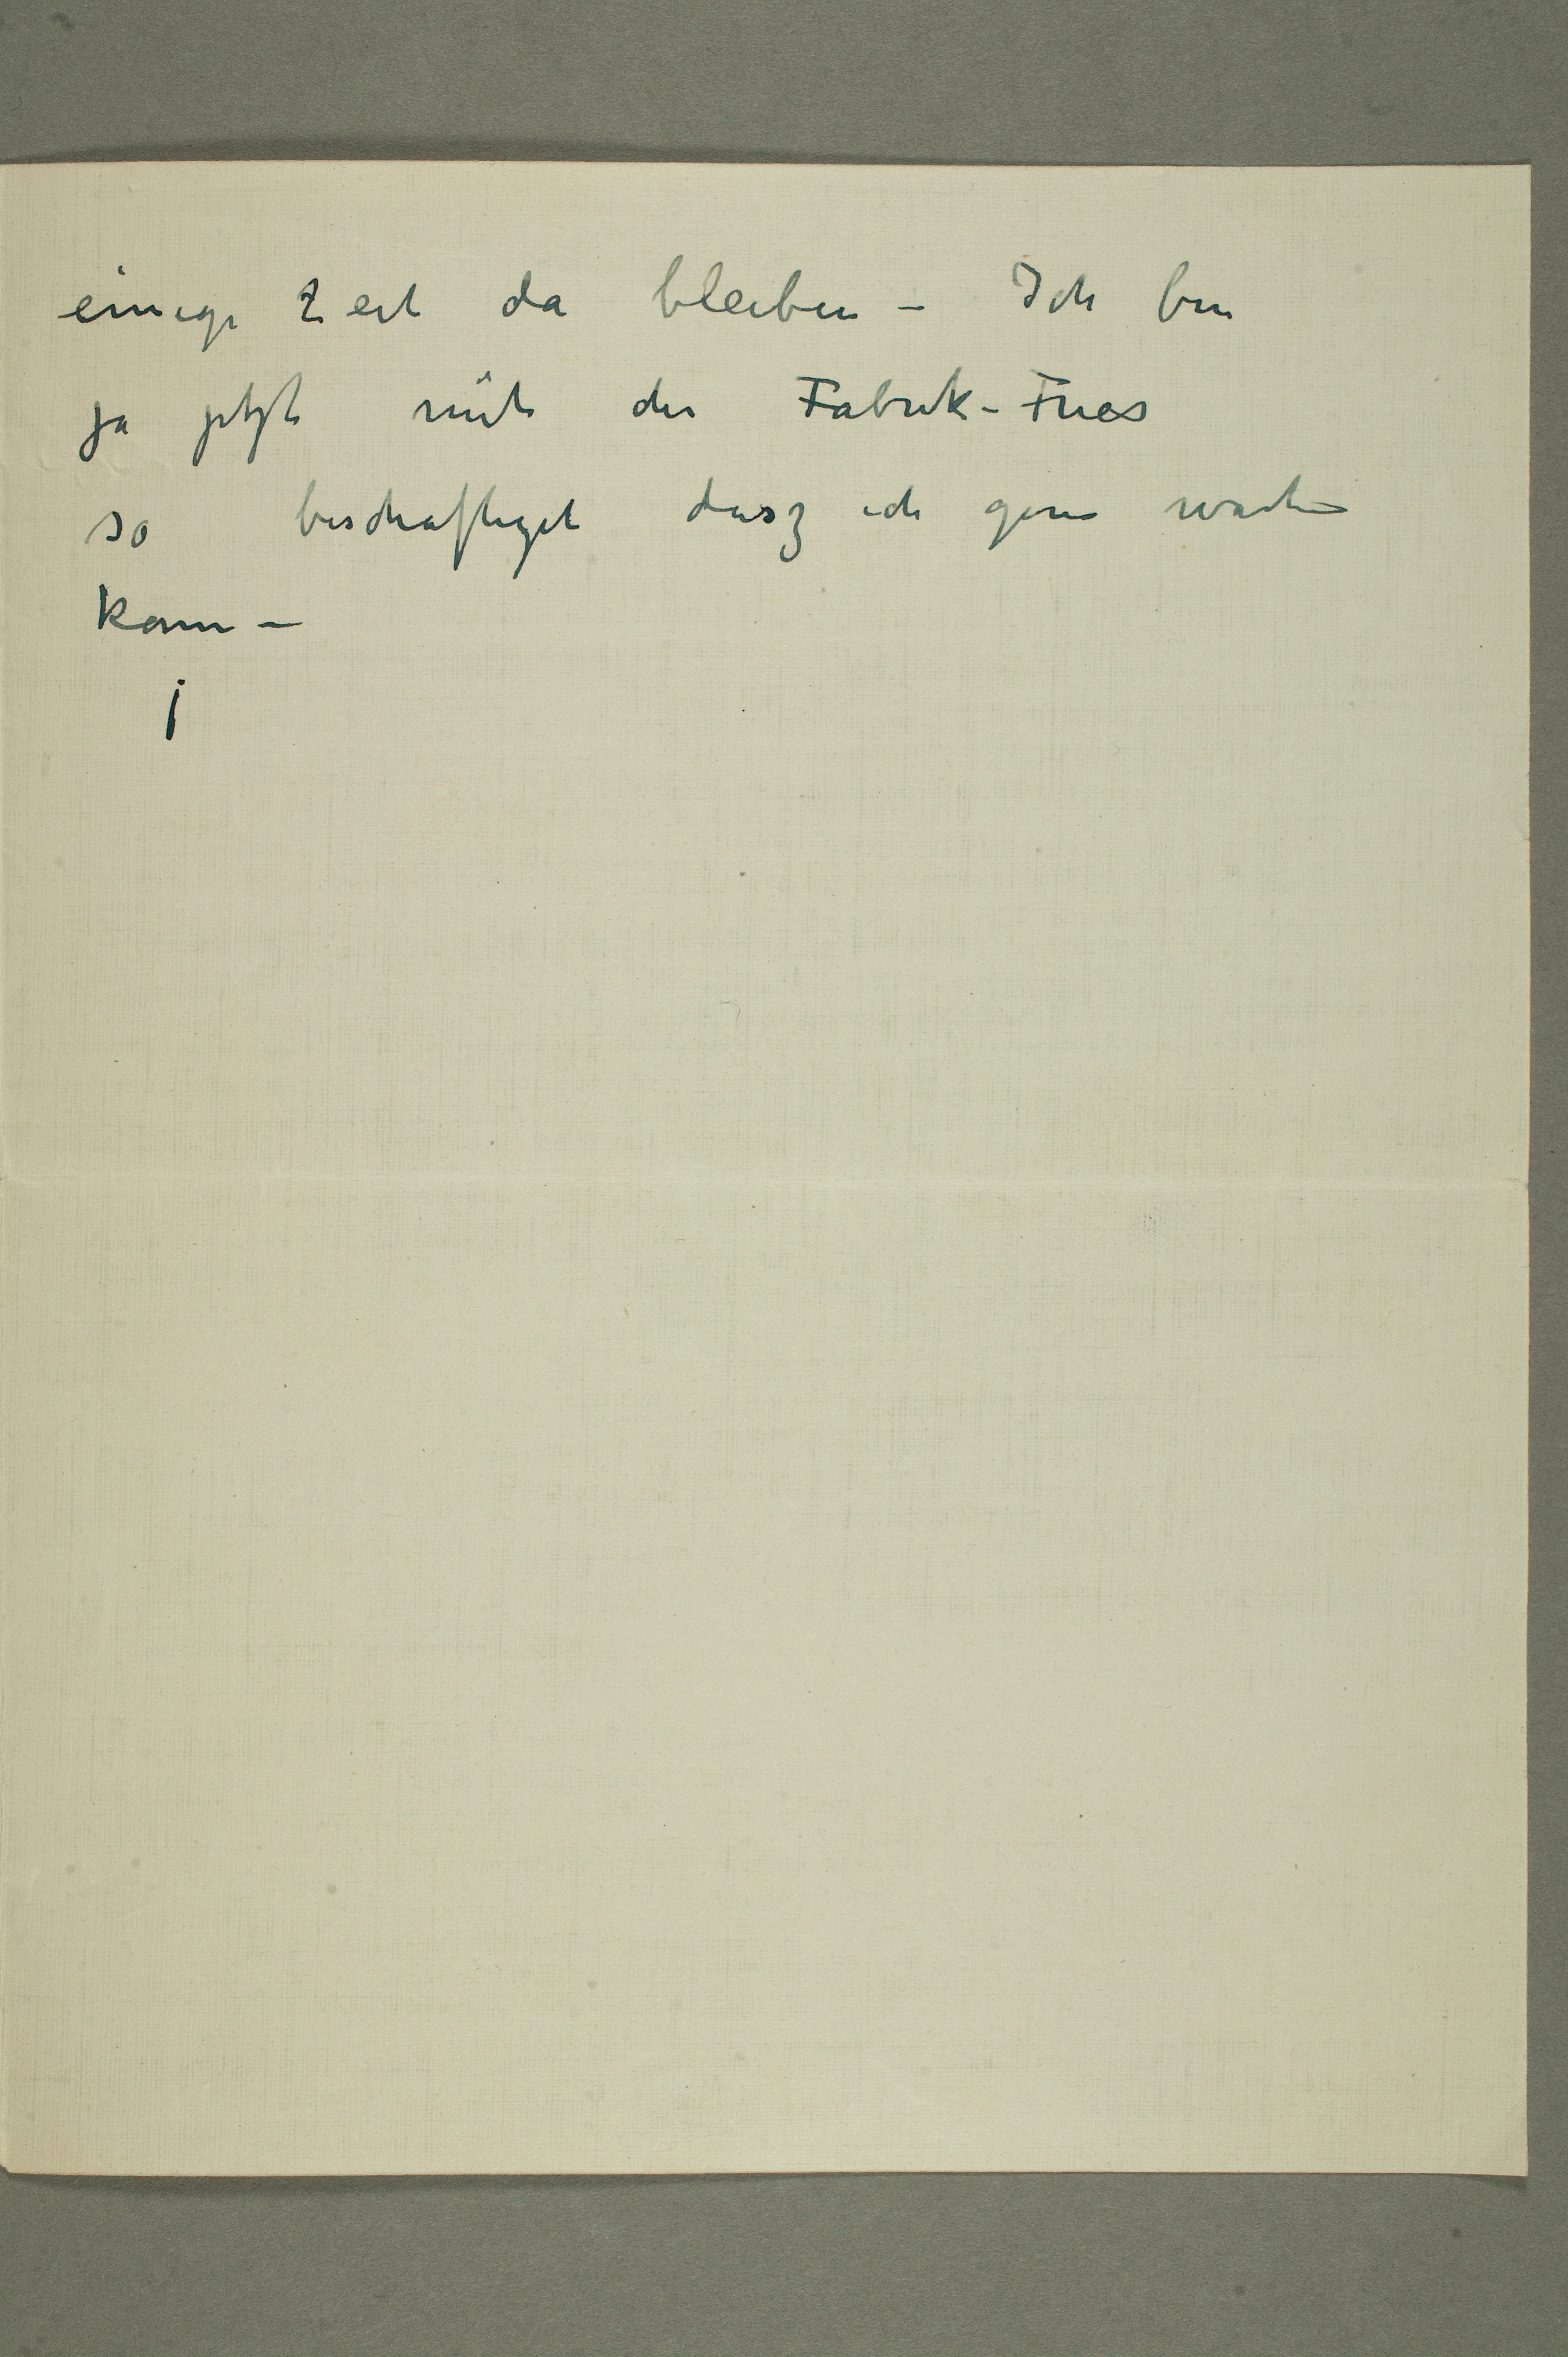 einige Zeit da bleiben – Ich bin
ja jetzt mit der Fabrik-Fries
so beschaftigt dasz ich gern warten
kann –
i